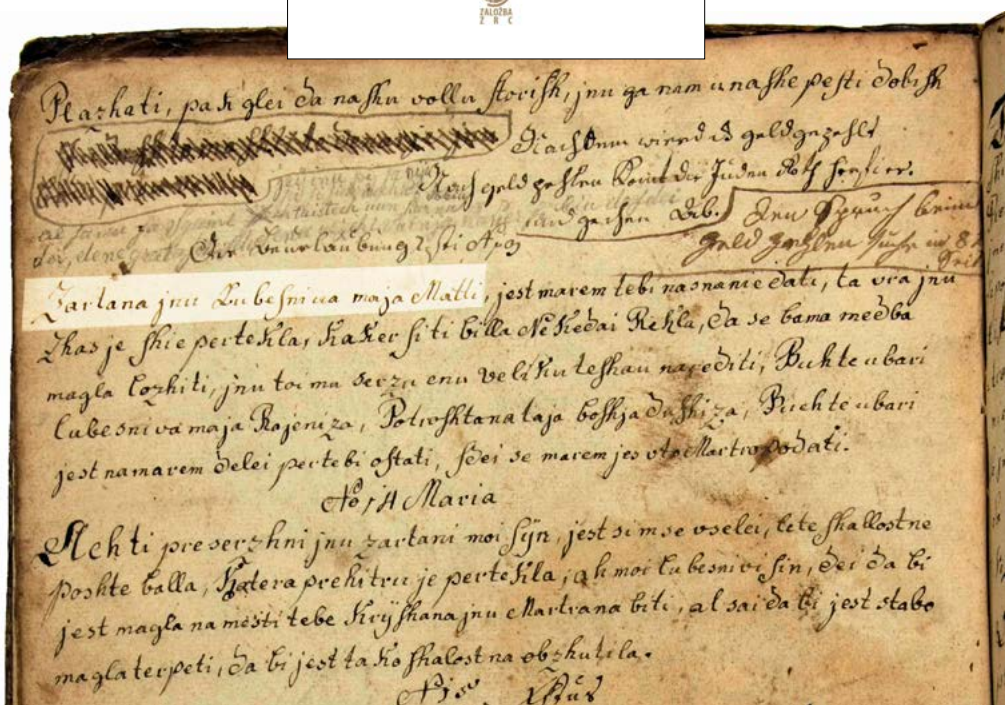 ZALOŽBA
Z R C
Plazhati, pak glei da nashu vollu storish, jnu ga nam u nashe pesti dobish
Nachdem wierd das geld gezehlt
Nach geld zehlen komt der Juden Roth herfier.
und gechen Ab. Den Spruch beim
geld zechlen
Die Beurlaubung
Zartana jnu Lubesniua maja Matti, jest marem tebi nasnanie dati, ta vra jnu
Zhas je shie pertekla, kaker si ti billa Nekedai Rekla, da se bama medba
magla lozhiti, jnu toimu serzu enu veliku teshau narediti, Buhte ubari
lubesniva maja Rojeniza, Potroshtana taja boshja dushiza, Buchte ubari
jest namarem delei pertebi ostati, sdei se marem jes vto Martro podati.
No 14 Maria
Ach ti preserzhni jnu zartani moi Syn, jest sim se vselei, lete shallostne
poshte balla, Katera prehitru je pertekla, ah moi lubesnivi sin, dei da bi
jest magla namesti tebe Kryshana jnu Martrana biti, al sai da bi jest stabo
magla terpeti, da bi jest tako shalostna obzhutila.